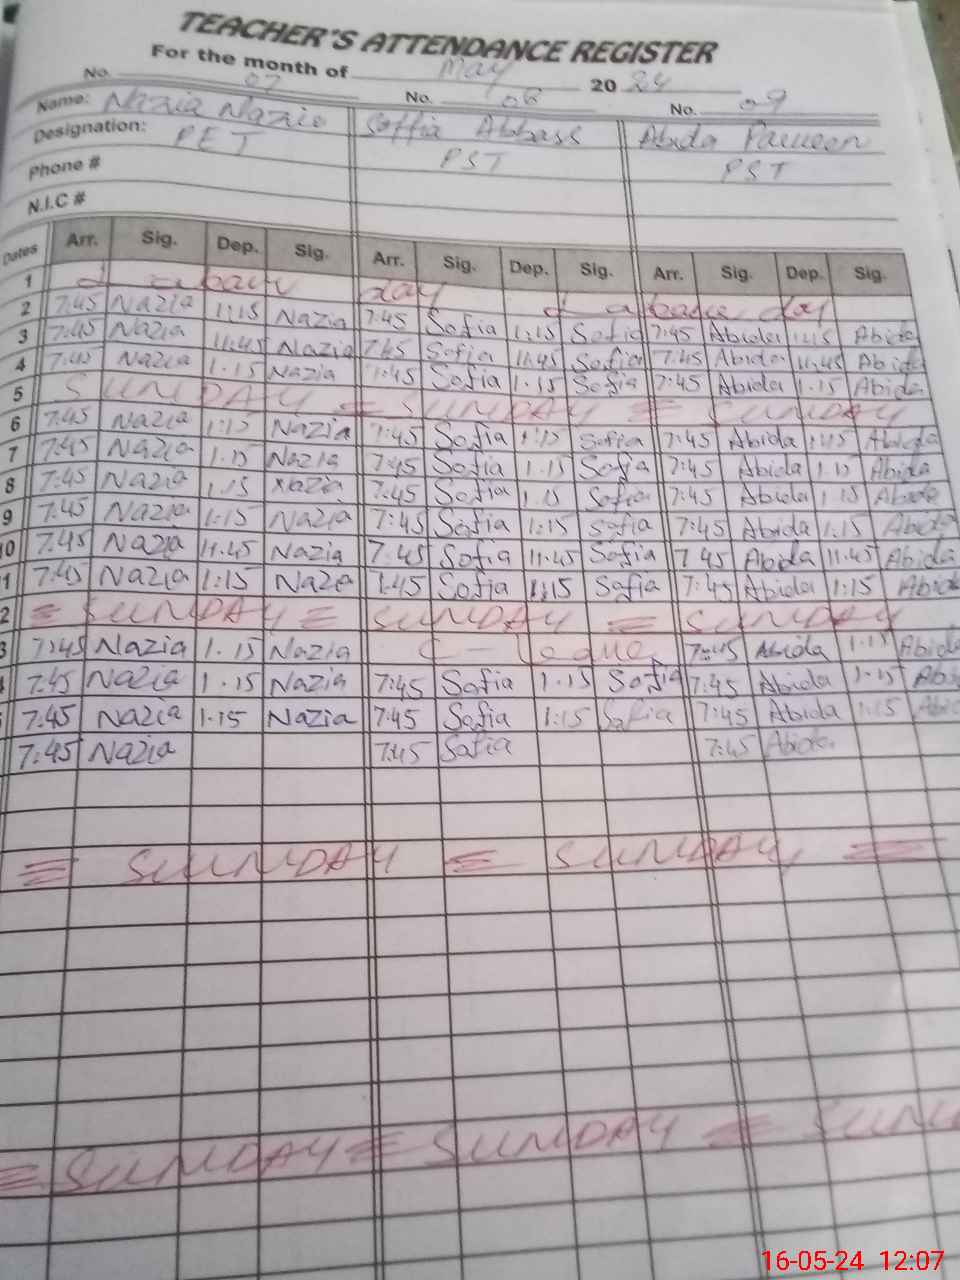 TEACHER'S ATTENDANCE REGISTER
For the month of May 2024
No. 07 No. 08 No. 09
Name: Nazia Nazir Soffia Abbass Abida Parveen
Designation: PET PST PST
Phone #
N.I.C #
Dates Arr. Sig. Dep. Sig. Arr. Sig. Dep. Sig. Arr. Sig. Dep. Sig.
1 day day
2 7:45 Nazia 1:15 Nazia 7:45 Sofia 1:15 Sofia 7:45 Abida 1:15 Abida
3 7:45 Nazia 11:45 Nazia 7:45 Sofia 11:45 Sofia 7:45 Abida 11:45 Abida
4 7:45 Nazia 1.15 Nazia 7:45 Sofia 1.15 Sofia 7:45 Abida 1.15 Abida
5 SUNDAY = SUNDAY = SUNDAY
6 7:45 Nazia 1:15 Nazia 7:45 Sofia 1:15 Sofia 7:45 Abida 1:15 Abida
7 7:45 Nazia 1.15 Nazia 7:45 Sofia 1.15 Sofia 7:45 Abida 1.15 Abida
8 7:45 Nazia 1.15 Nazia 7:45 Sofia 1.15 Sofia 7:45 Abida 1.15 Abida
9 7:45 Nazia 1:15 Nazia 7:45 Sofia 1:15 Sofia 7:45 Abida 1:15 Abida
10 7.45 Nazia 11.45 Nazia 7.45 Sofia 11.45 Sofia 7 45 Abida 11.45 Abida
1 7:45 Nazia 1:15 Naze 7:45 Sofia 1:15 Sofia 7:45 Abida 1:15 Abida
2 = SUNDAY = SUNDAY = SUNDAY
3 7:45 Nazia 1.15 Nazia C - Leave 7:45 Abida 1.15 Abida
7.45 Nazia 1.15 Nazia 7:45 Sofia 1.15 Sofia 7:45 Abida 1.15 Abi
7:45 Nazia 1.15 Nazia 7:45 Sofia 1:15 Sofia 7:45 Abida 1:15 Abid
7:45 Nazia 7:45 Sofia 7:45 Abida
= SUNDAY = SUNDAY =
= SUNDAY = SUNDAY = SUN
16-05-24 12:07